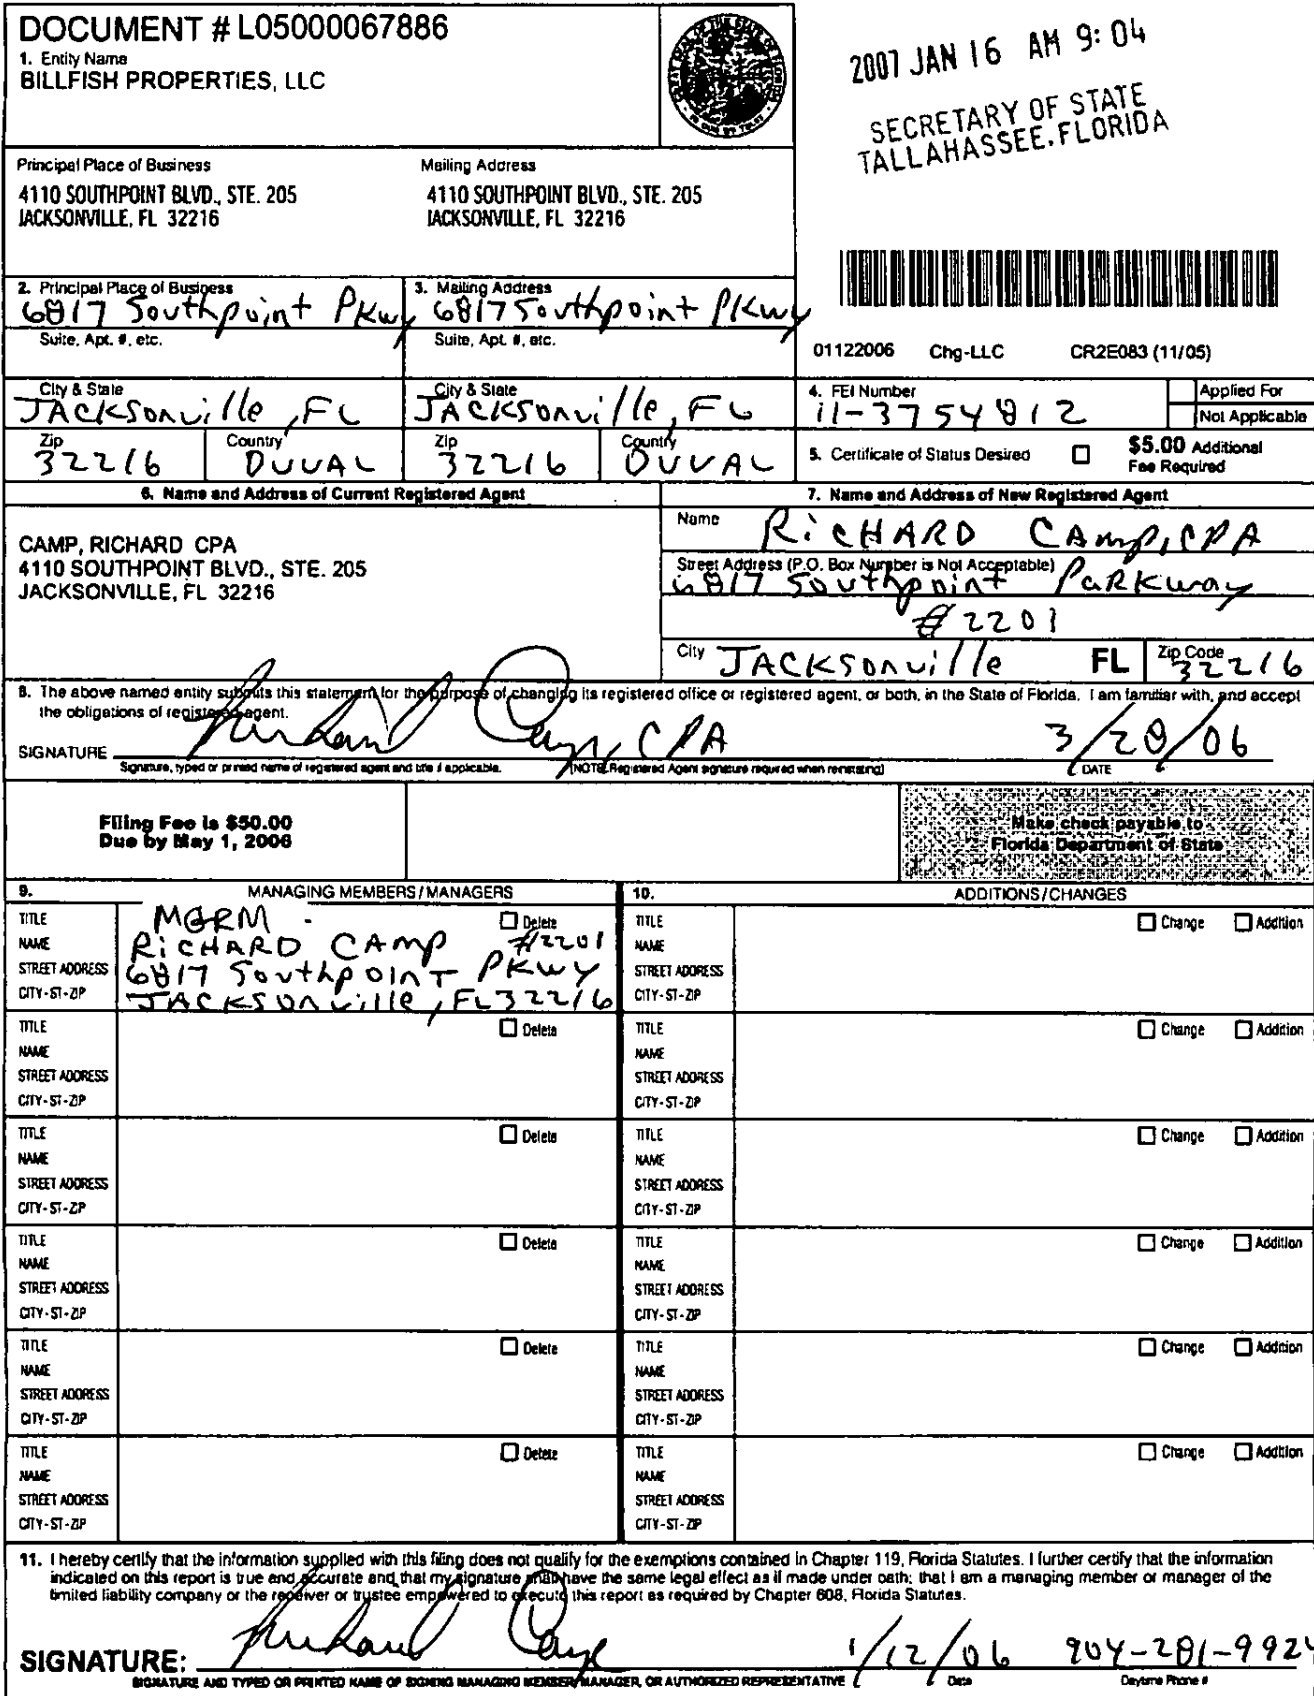 DOCUMENT # L05000067886
1. Entity Name
BILLFISH PROPERTIES, LLC
2007 JAN 16 AM 9:04
SECRETARY OF STATE
TALLAHASSEE, FLORIDA
Principal Place of Business
4110 SOUTHPOINT BLVD., STE. 205
JACKSONVILLE, FL 32216
Mailing Address
4110 SOUTHPOINT BLVD., STE. 205
JACKSONVILLE, FL 32216
2. Principal Place of Business
6817 Southpoint PKwy
Suite, Apt. #, etc.
3. Mailing Address
6817 Southpoint PKwy
Suite, Apt. #, etc.
01122006 Chg-LLC CR2E083 (11/05)
City & State
JACKSonville, FL
City & State
JACKSonville, FL
4. FEI Number
11-3754812
Applied For
Not Applicable
Zip
32216
Country
DUVAL
Zip
32216
Country
DUVAL
5. Certificate of Status Desired
$5.00 Additional
Fee Required
6. Name and Address of Current Registered Agent
CAMP, RICHARD CPA
4110 SOUTHPOINT BLVD., STE. 205
JACKSONVILLE, FL 32216
7. Name and Address of New Registered Agent
Name RiCHARD CAmp, CPA
Street Address (P.O. Box Number is Not Acceptable)
6817 Southpoint PaRKway
#2201
City JACKSonville FL Zip Code 32216
8. The above named entity submits this statement for the purpose of changing its registered office or registered agent, or both, in the State of Florida. I am familiar with, and accept
the obligations of registered agent.
SIGNATURE Richard Camp, CPA 3/28/06
Signature, typed or printed name of registered agent and title if applicable. (NOTE: Registered Agent signature required when reinstating) DATE
Filing Fee is $50.00
Due by May 1, 2006
Make check payable to
Florida Department of State
9. MANAGING MEMBERS/MANAGERS
TITLE MGRM Delete
NAME RiCHARD CAmp #2201
STREET ADDRESS 6817 Southpoint PKwy
CITY-ST-ZIP JACKSonville, FL 32216
TITLE Delete
NAME
STREET ADDRESS
CITY-ST-ZIP
TITLE Delete
NAME
STREET ADDRESS
CITY-ST-ZIP
TITLE Delete
NAME
STREET ADDRESS
CITY-ST-ZIP
TITLE Delete
NAME
STREET ADDRESS
CITY-ST-ZIP
TITLE Delete
NAME
STREET ADDRESS
CITY-ST-ZIP
10. ADDITIONS/CHANGES
TITLE Change Addition
NAME
STREET ADDRESS
CITY-ST-ZIP
TITLE Change Addition
NAME
STREET ADDRESS
CITY-ST-ZIP
TITLE Change Addition
NAME
STREET ADDRESS
CITY-ST-ZIP
TITLE Change Addition
NAME
STREET ADDRESS
CITY-ST-ZIP
TITLE Change Addition
NAME
STREET ADDRESS
CITY-ST-ZIP
TITLE Change Addition
NAME
STREET ADDRESS
CITY-ST-ZIP
11. I hereby certify that the information supplied with this filing does not qualify for the exemptions contained in Chapter 119, Florida Statutes. I further certify that the information
indicated on this report is true and accurate and that my signature shall have the same legal effect as if made under oath; that I am a managing member or manager of the
limited liability company or the receiver or trustee empowered to execute this report as required by Chapter 608, Florida Statutes.
SIGNATURE: Richard Camp 1/12/06 904-281-9924
SIGNATURE AND TYPED OR PRINTED NAME OF SIGNING MANAGING MEMBER, MANAGER, OR AUTHORIZED REPRESENTATIVE Date Daytime Phone #